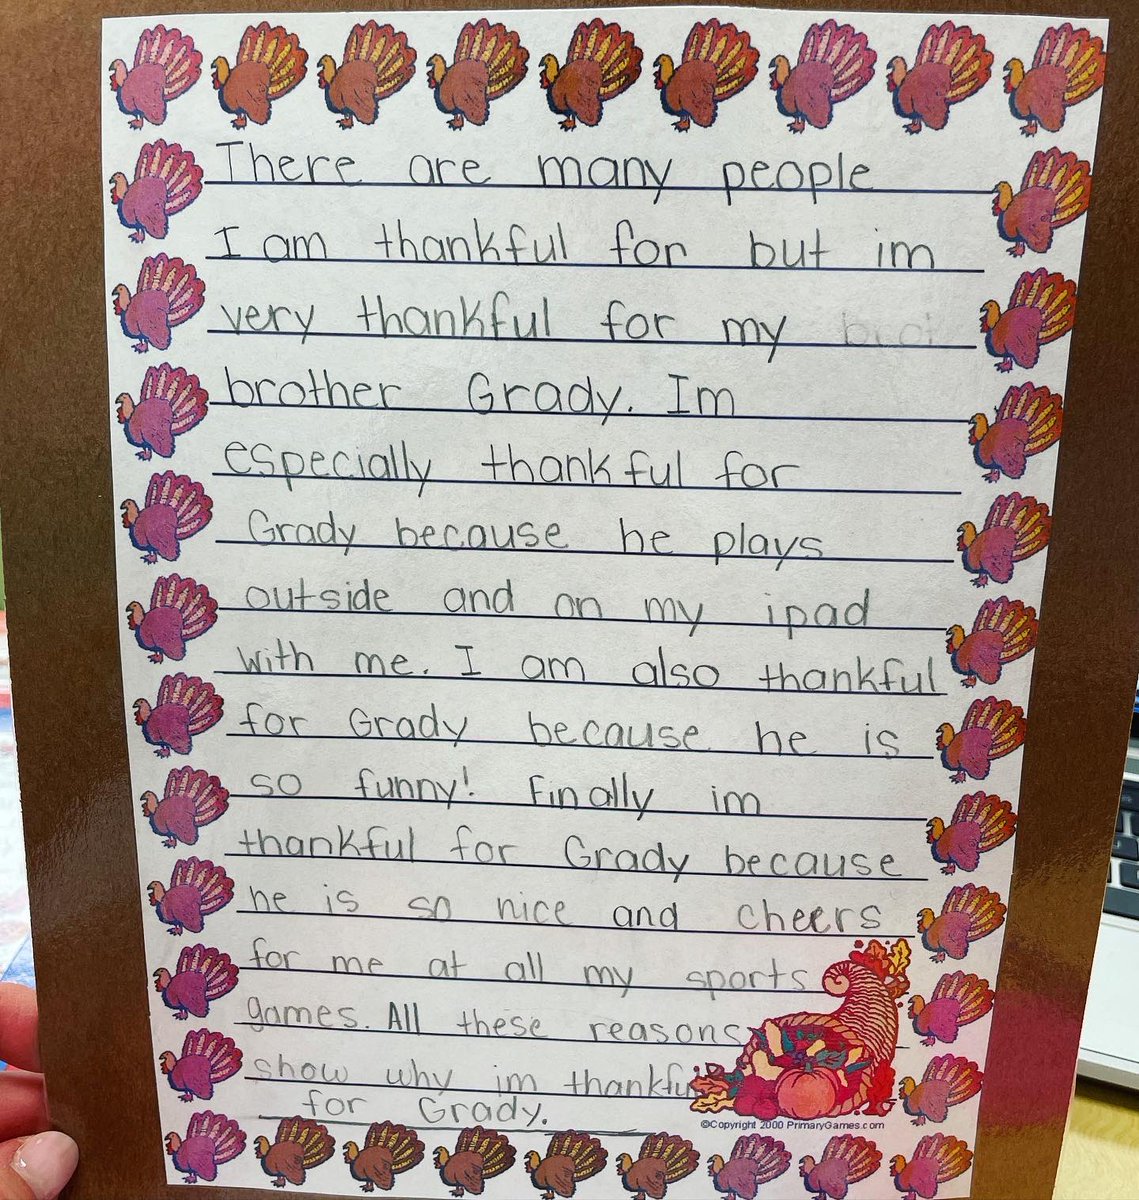 There are many people
I am thankful for but im
very thankful for my
brother Grady. Im
especially thankful for
Grady because he plays
outside and on my ipad
with me. I am also thankful
for Grady because he is
so funny! Finally im
thankful for Grady because
he is so nice and cheers
for me at all my sports
games. All these reasons
show why im thankful
for Grady.
©Copyright 2000 PrimaryGames.com